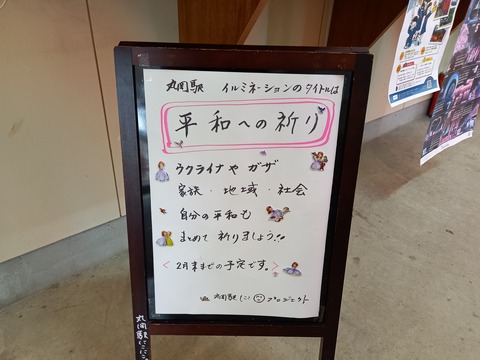 丸岡駅 イルミネーションのタイトルは
平和への祈り
ウクライナや ガザ
家族・地域・社会
自分の平和も
まとめて 祈りましょう!!
<2月末までの予定です。>
丸岡駅にこ プロジェクト